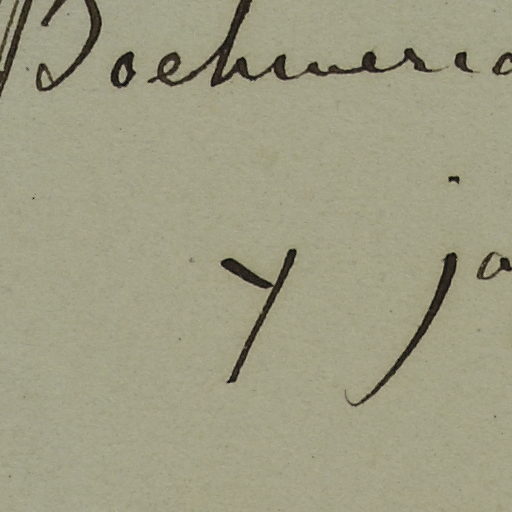 Boehmeria
y ja